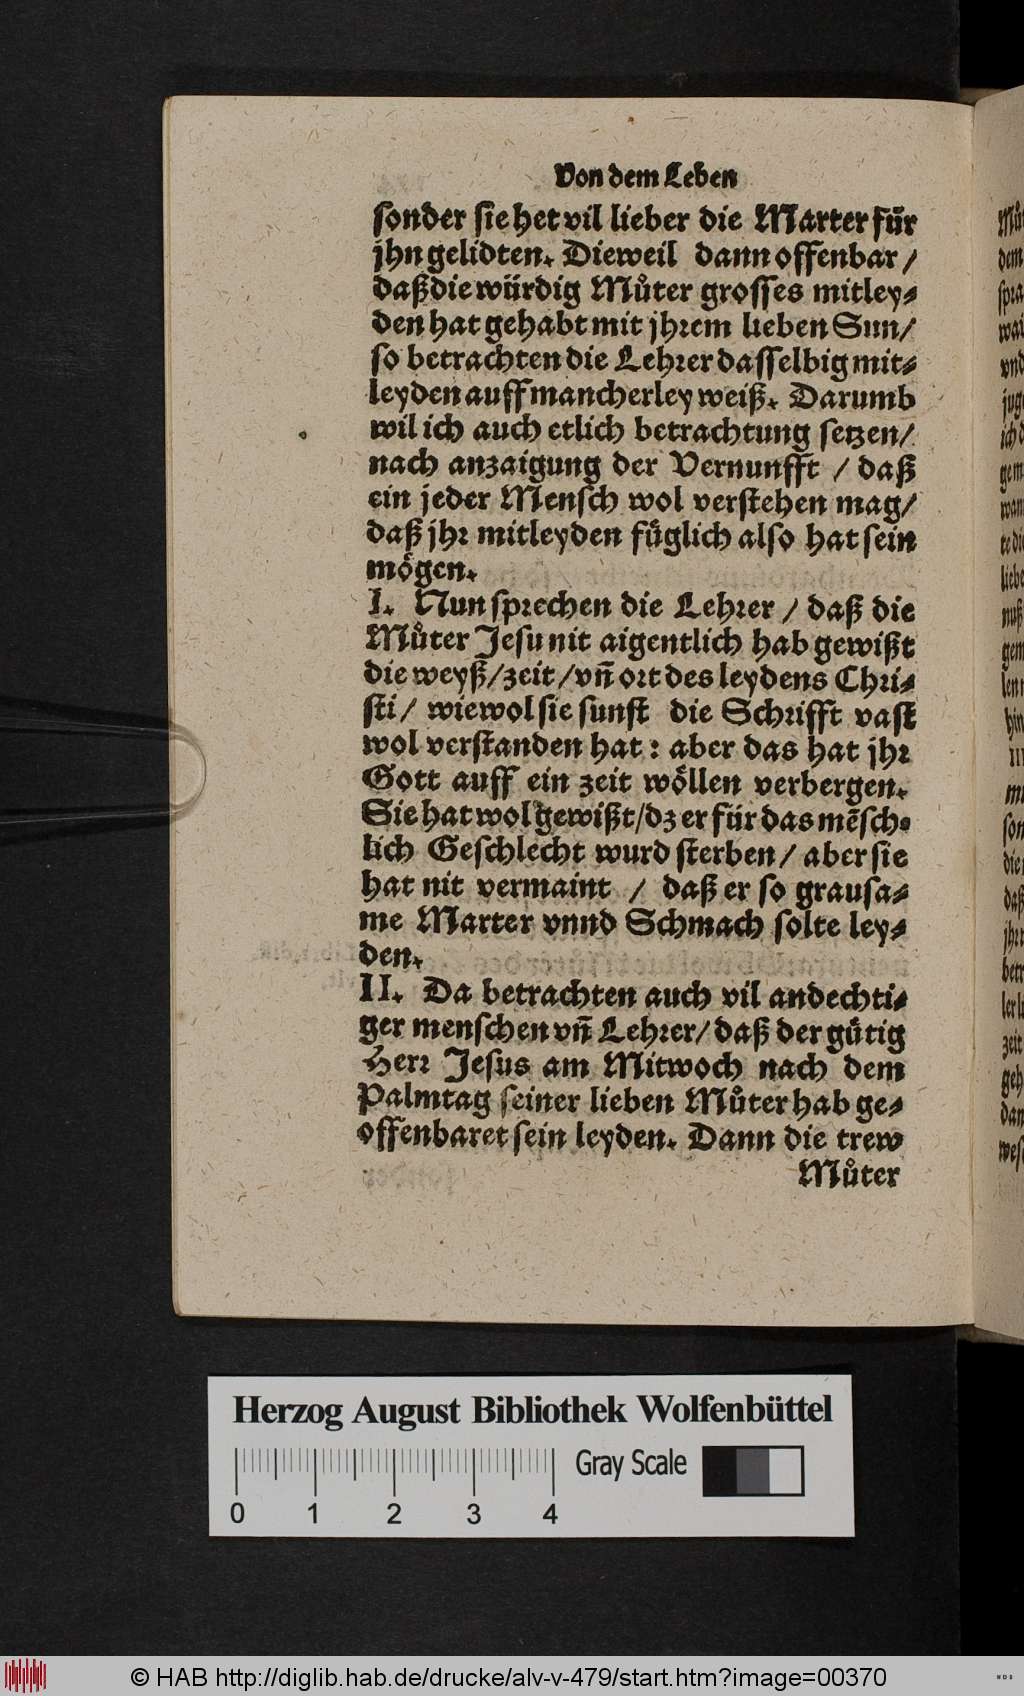 Von dem Leben
sonder sie het vil lieber die Marter für
jhn gelidten. Dieweil dann offenbar /
daß die würdig Můter grosses mitley⸗
den hat gehabt mit jhrem lieben Sun/
so betrachten die Lehrer dasselbig mit⸗
leyden auff mancherley weiß. Darumb
wil ich auch etlich betrachtung setzen/
nach anzaigung der Vernunfft / daß
ein jeder Mensch wol verstehen mag/
daß jhr mitleyden füglich also hat sein
mögen.
I. Nun sprechen die Lehrer / daß die
Můter Jesu nit aigentlich hab gewißt
die weyß/zeit/vñ ort des leydens Chri⸗
sti/ wiewol sie sunst die Schrifft vast
wol verstanden hat: aber das hat jhr
Gott auff ein zeit wöllen verbergen.
Sie hat wol gewißt/dz er für das mẽsch⸗
lich Geschlecht wurd sterben/ aber sie
hat nit vermaint / daß er so grausa⸗
me Marter vnnd Schmach solte ley⸗
den.
II. Da betrachten auch vil andechti⸗
ger menschen vñ Lehrer/ daß der gütig
Herr Jesus am Mitwoch nach dem
Palmtag seiner lieben Můter hab ge⸗
offenbaret sein leyden. Dann die trew
Můter
Herzog August Bibliothek Wolfenbüttel
Gray Scale
0 1 2 3 4
© HAB http://diglib.hab.de/drucke/alv-v-479/start.htm?image=00370